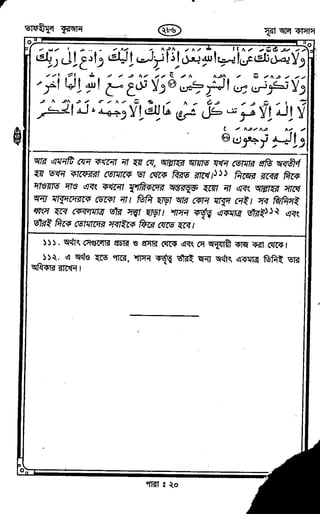 তাফহীমুল কুরআন
২৮৬
সূরা আল কাসাস
وَلَا يَصُدُّنَّكَ عَنْ اٰيٰتِ اللهِ بَعْدَ اِذْ اُنْزِلَتْ اِلَيْكَ وَادْعُ اِلٰى رَبِّكَ
وَلَا تَكُوْنَنَّ مِنَ الْمُشْرِكِيْنَ ۚ وَلَا تَدْعُ مَعَ اللهِ اِلٰهًا اٰخَرَ ۘ
لَآ اِلٰهَ اِلَّا هُوَ ۗ كُلُّ شَيْءٍ هَالِكٌ اِلَّا وَجْهَهٗ ۗ لَهُ الْحُكْمُ
وَاِلَيْهِ تُرْجَعُوْنَ
আর এমনটি যেন কখনো না হয় যে, আল্লাহর আয়াত যখন তোমার প্রতি অবতীর্ণ
হয় তখন কাফেররা তোমাকে তা থেকে বিরত রাখে।১১১ নিজের রবের দিকে
দাওয়াত দাও এবং কখনো মুশরিকদের অন্তরভুক্ত হয়ো না এবং আল্লাহর সাথে
অন্য মাবুদদেরকে ডেকো না। তিনি ছাড়া আর কোন মাবুদ নেই। সব জিনিসই
ধ্বংস হবে কেবলমাত্র তাঁর সত্ত্বা ছাড়া। শাসন কর্তৃত্ব একমাত্র তাঁরই১১২ এবং
তাঁরই দিকে তোমাদের সবাইকে ফিরে যেতে হবে।
১১১. অর্থাৎ সেগুলোর প্রচার ও প্রসার থেকে এবং সে অনুযায়ী কাজ করা থেকে।
১১২. এ অর্থও হতে পারে, শাসন কর্তৃত্ব তাঁরই জন্য অর্থাৎ একমাত্র তিনিই তার
অধিকার রাখেন।
পারা : ২০